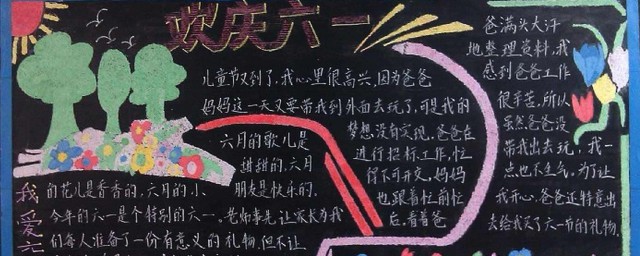 欢庆六一
儿童节又到了，我心里很高兴，因为爸爸
妈妈这一天又要带我到外面去玩了，可是我的
梦想没有实现，爸爸在
进行招标工作，忙
得不可开交，妈妈
也跟着忙前忙
后，看着爸
爸满头大汗
地整理资料，我
感到爸爸工作
很辛苦，所以
虽然爸爸没
带我出去玩，我一
点也不生气，为了让
我开心，爸爸还特意出
去给我买了六一节的礼物
我爱六
六月的歌儿是
甜甜的，六月
的花儿是香香的，六月的小
朋友是快乐的，
今年的六一是个特别的六一。老师事先让家长为我
们每人准备了一份有意义的礼物，但不让